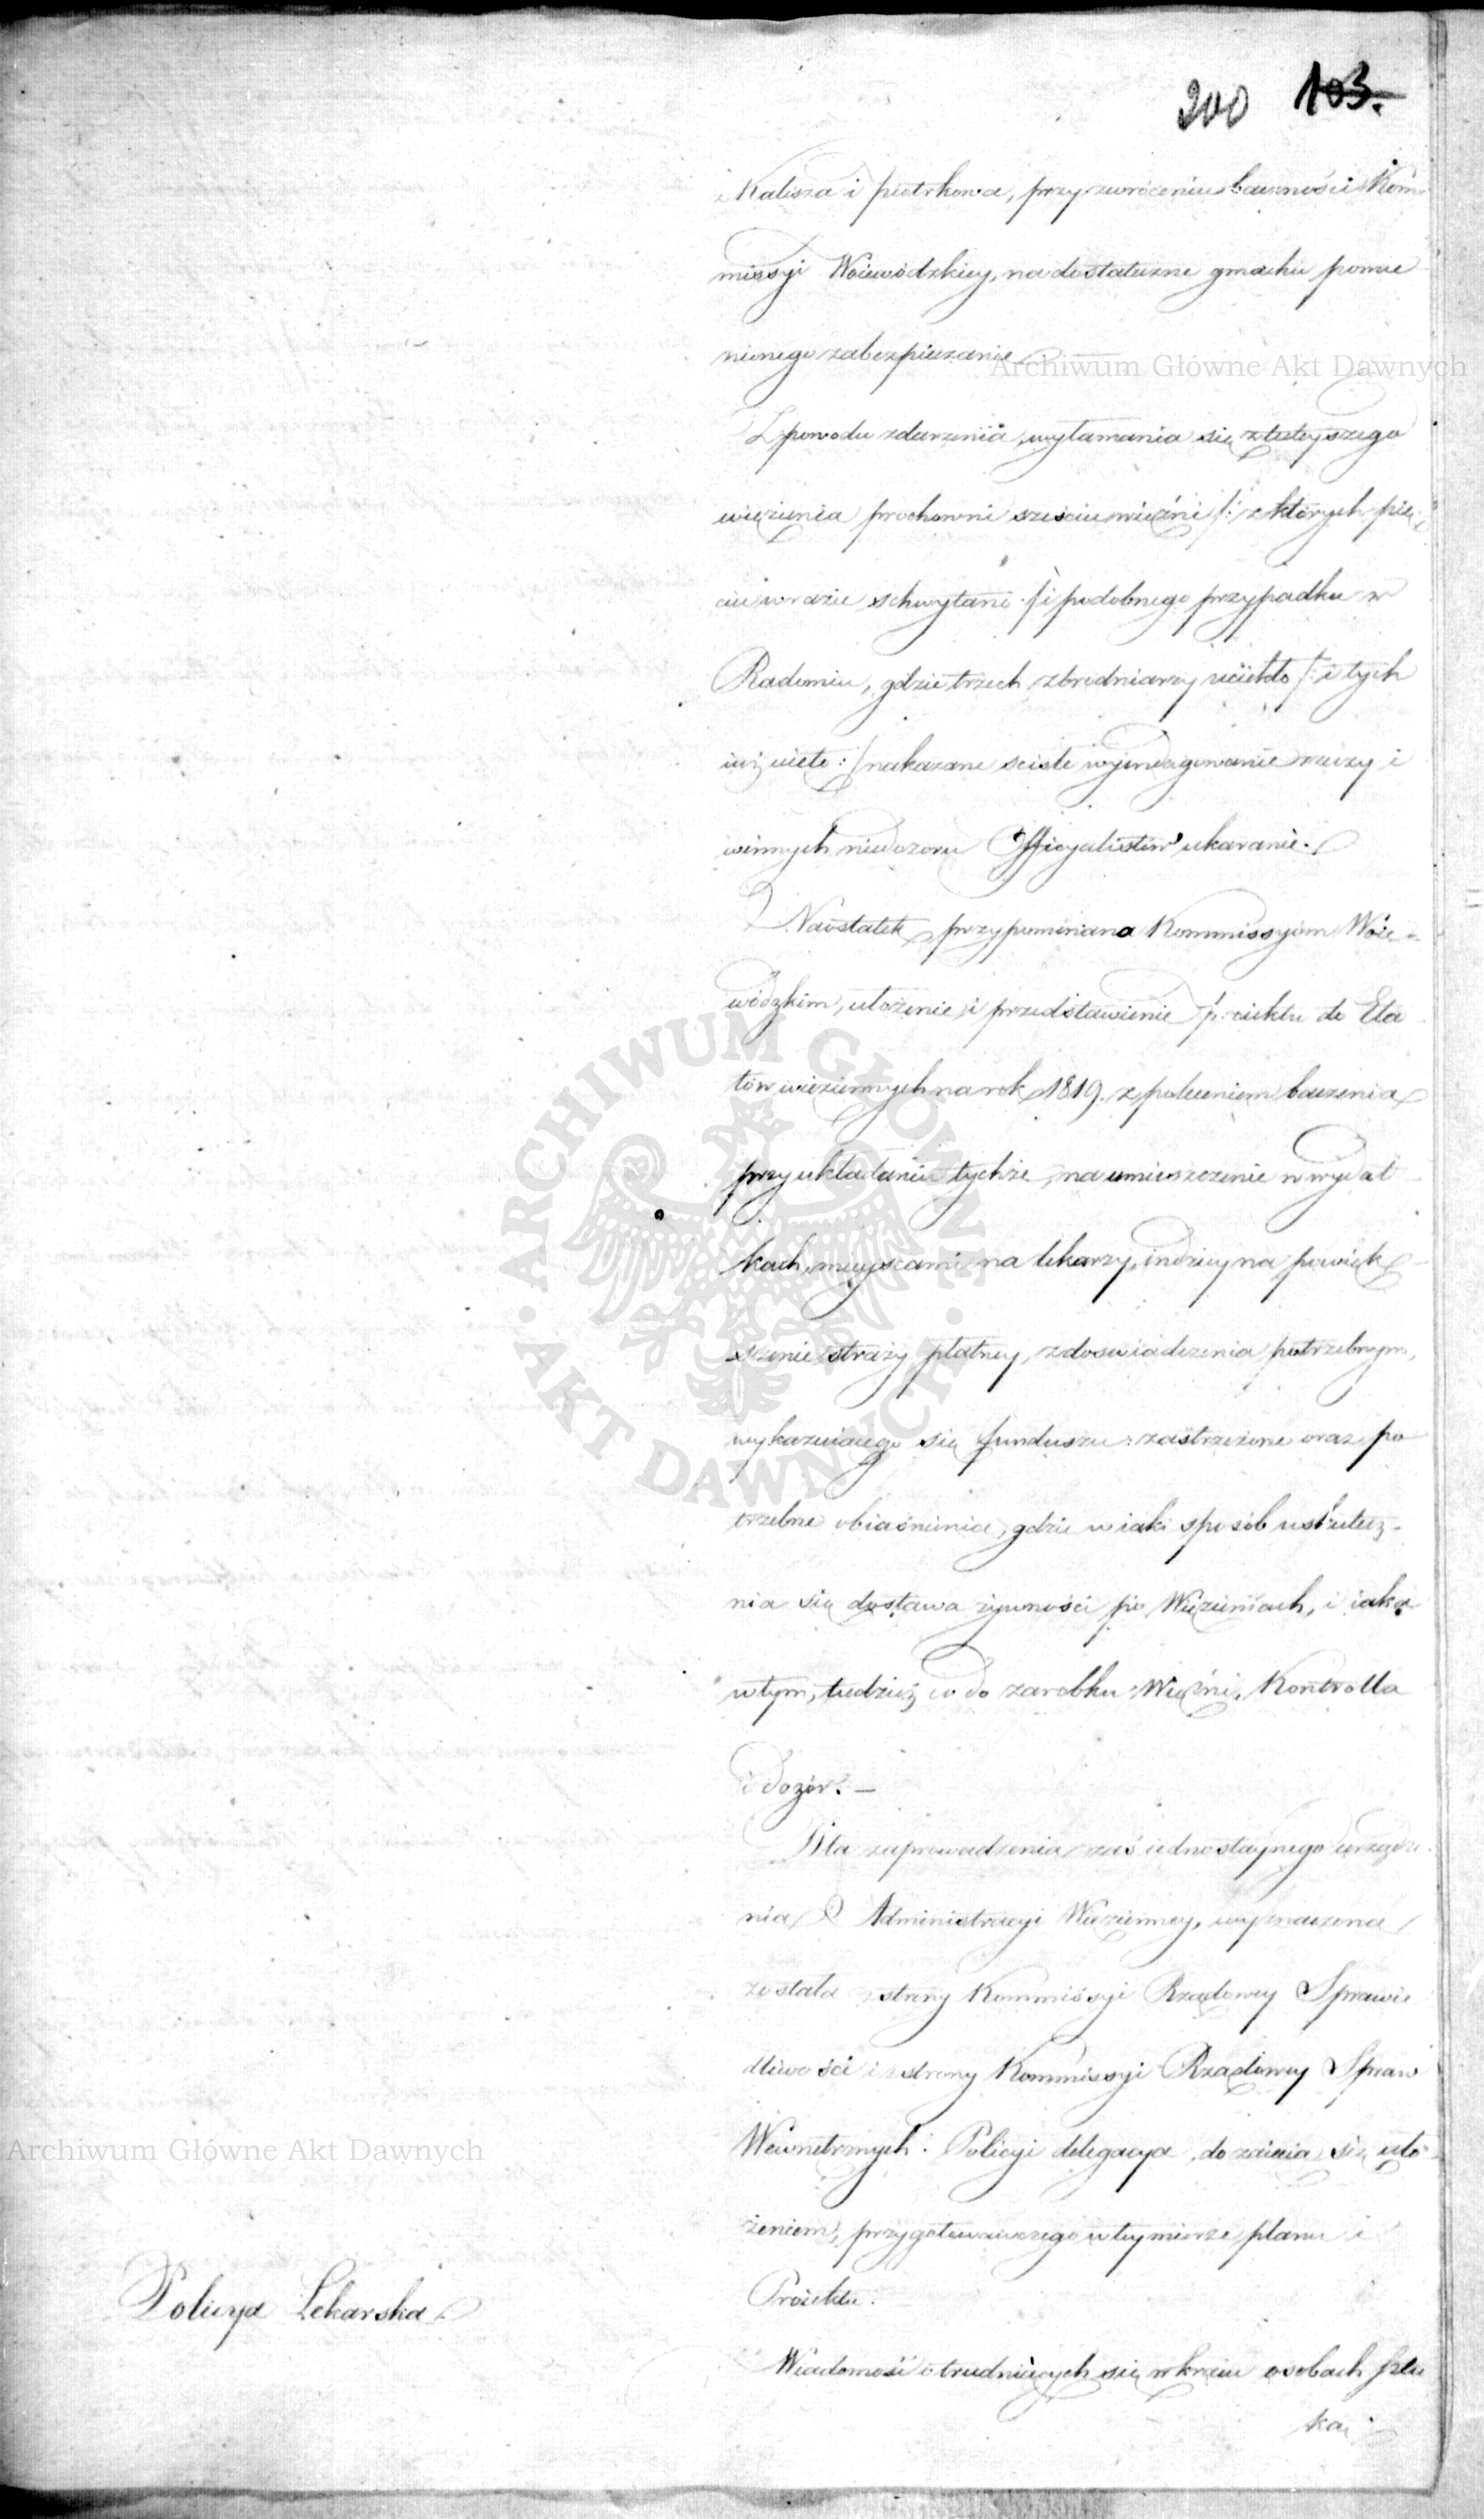 200 103.
z Kalisza i piotrkowa, przy zwróceniu baczności Kom
missyi Woiewódzkiey, na dostateczne gmachu pomie
nionego zabezpieczanie
Archiwum Główne Akt Dawnych
Z powodu zdarzenia wyłamania się z tuteyszego
więzienia prochowni sześciu więźni /: z których pię
ciu wrazie schwytani :/ i podobnego przypadku w
Radomiu, gdzie trzech zbrodniarzy uciekło /: i tych
iuż uięto :/ nakazane sciste wyindagowanie rzeczy i
winnych niedozoru Officyalistów ukaranie.
Naostatek przypomniano Kommissyiom Woie-
wódzkim, ułożenie i przedstawienie proiektu do Eta
tów więziennych na rok 1819. z poleceniem baczenia
przy układaniu tychże, na umieszczenie w wydat
kach, mieyscami na lekarzy, indziey na powięk
szenie straży płatney, z doswiadczenia potrzebnym,
wykazuiącego się funduszu: zastrzeżone oraz po
trzebne obiaśnienia, gdzie w iaki sposób uskutecz-
nia się dostawa żywności po Więzieniach, i iaka
w tym, tudzież co do zarobku Więźni, Kontrolla
i dozór. —
Dla zaprowadzenia zaś iednostaynego urządze
nia Administracyi Więzienney, wyznaczona
została z strony Kommissyi Rządowey Sprawie
dliwości i z strony Kommissyi Rządowey Spraw
Wewnętrznych i Policyi delegacya, do zaięcia się uło
żeniem, przygotowawczego w tey mierze planu i
Proiektu.
Archiwum Główne Akt Dawnych
Policya Lekarska
Wiadomość o trudniących się w kraiu osobach sztu
ką
ARCHIWUM GŁÓWNE · AKT DAWNYCH ·